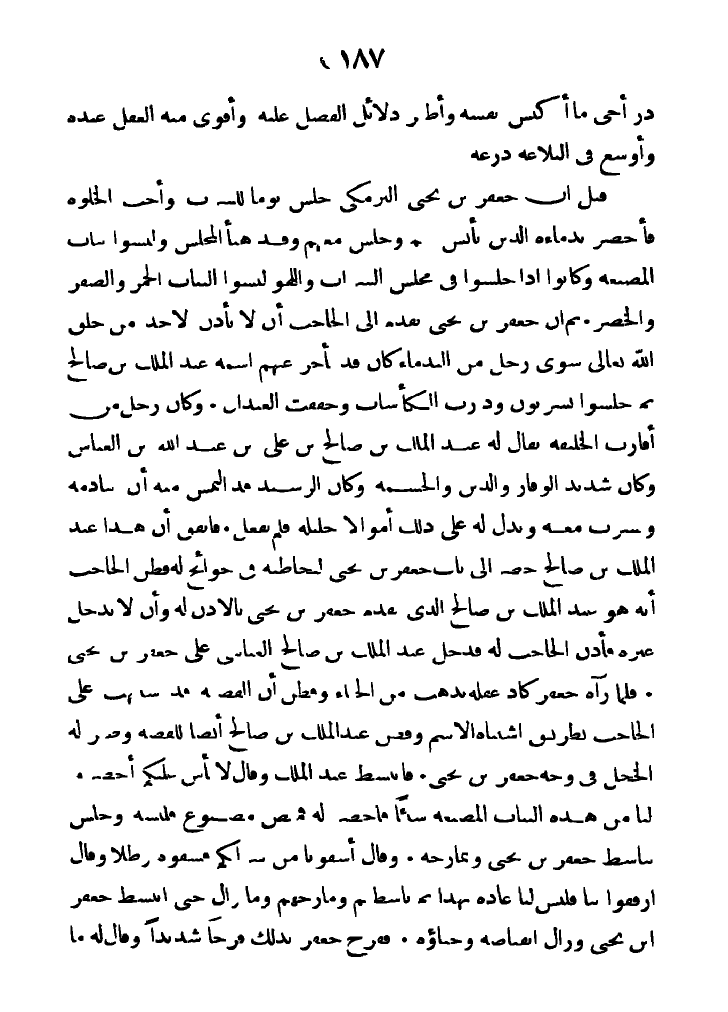 ١٨٧
در أخي ما أكيس نفسه وأظهر دلائل الفضل عليه وأقوى منة العقل عنده
وأوسع في البلاغة ذرعه
قيل ان جعفر بن يحيى البرمكي جلس يوما للشرب وأحب الخلوة
فأحضر ندماءه الذين يأنس بهم وجلس معهم وقد هيأ المجلس ولبسوا ثياب
المصبغة وكانوا اذا جلسوا في مجلس الشراب واللهو لبسوا الثياب الحمر والصفر
والخضر . ثم ان جعفر بن يحيى تقدم الى الحاجب أن لا يأذن لاحد من خلق
الله تعالى سوى رجل من الندماء كان قد تأخر عنهم اسمه عبد الملك بن صالح
ثم جلسوا يشربون ودارت الكأسات وخفقت العيدان . وكان رجل من
أقارب الخليفة يقال له عبد الملك بن صالح بن علي بن عبد الله بن العباس
وكان شديد الوقار والدين والحشمة وكان الرشيد قد التمس منه أن ينادمه
ويشرب معه وبذل له على ذلك أموالا جليلة فلم يفعل . فاتفق أن هذا عبد
الملك بن صالح حضر الى باب جعفر بن يحيى ليخاطبه في حوائج له فظن الحاجب
أنه هو عبد الملك بن صالح الذي تقدم جعفر بن يحيى بالاذن له وأن لا يدخل
غيره فأذن الحاجب له فدخل عبد الملك بن صالح العباسي على جعفر بن يحيى
. فلما رآه جعفر كاد عقله يذهب من الحياء وفطن أن القضية قد اشتبهت على
الحاجب بطريق اشتباه الاسم وفطن عبد الملك بن صالح أيضا للقصة وظهر له
الخجل في وجه جعفر بن يحيى . فانبسط عبد الملك وقال لا بأس عليكم أحضروا
لنا من هذه الثياب المصبغة شيئا فاحضر له قميص مصبوغ فلبسه وجلس
يباسط جعفر بن يحيى ويمازحه . وقال أسقونا من شرابكم فسقوه رطلا وقال
ارفقوا بنا فليس لنا عادة بهذا ثم باسطهم ومازحهم وما زال حتى انبسط جعفر
ابن يحيى وزال انقباضه وحياؤه . ففرح جعفر بذلك فرحا شديدا وقال له ما